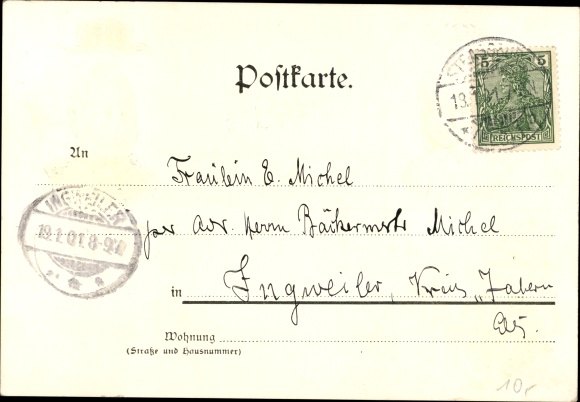 Postkarte.
5 5
REICHSPOST
An
Fräulein E. Michel
per Adr. Herrn Bäckermstr Michel
INGWEILER
19.1.01.8-9V.
in Ingweiler, Kreis „Zabern
Els.
Wohnung
(Straße und Hausnummer)
10,-